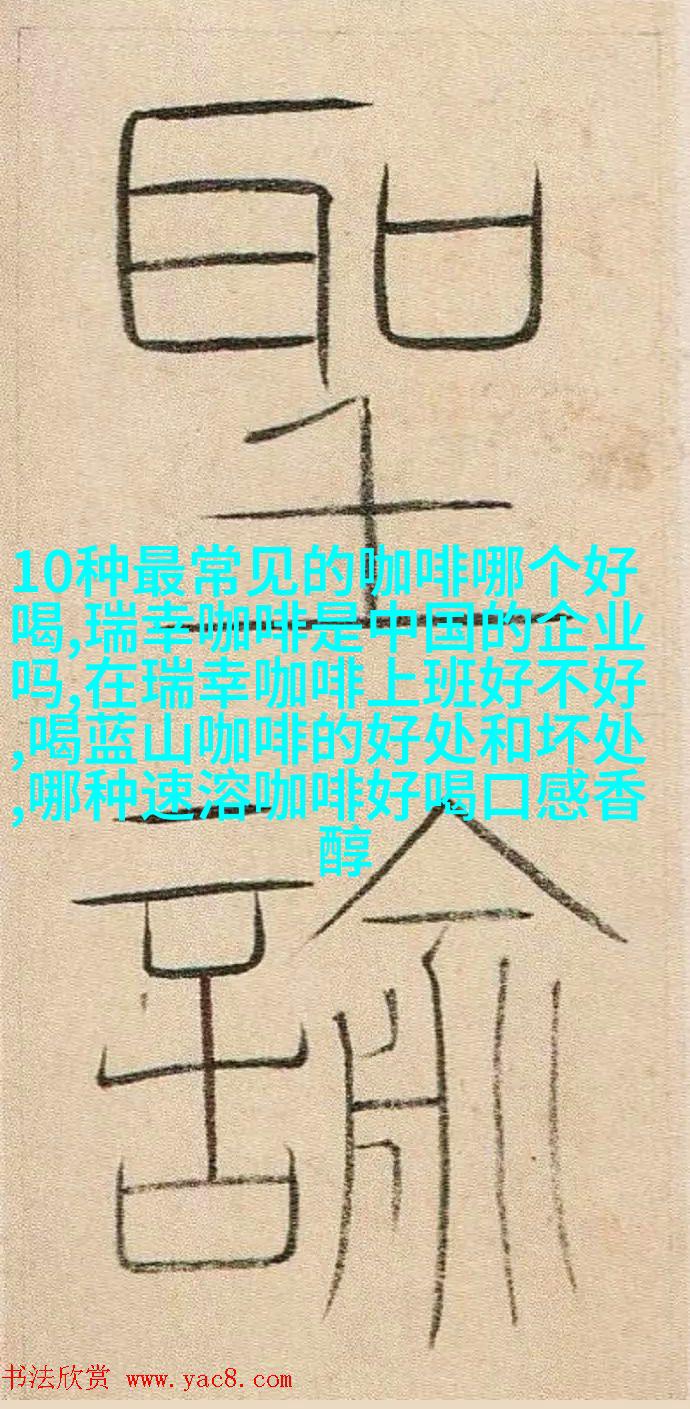 聖
10种最常见的咖啡哪个好
喝,瑞幸咖啡是中国的企业
吗,在瑞幸咖啡上班好不好
,喝蓝山咖啡的好处和坏处
,哪种速溶咖啡好喝口感香
醇
諭
书法欣赏 www.yac8.com